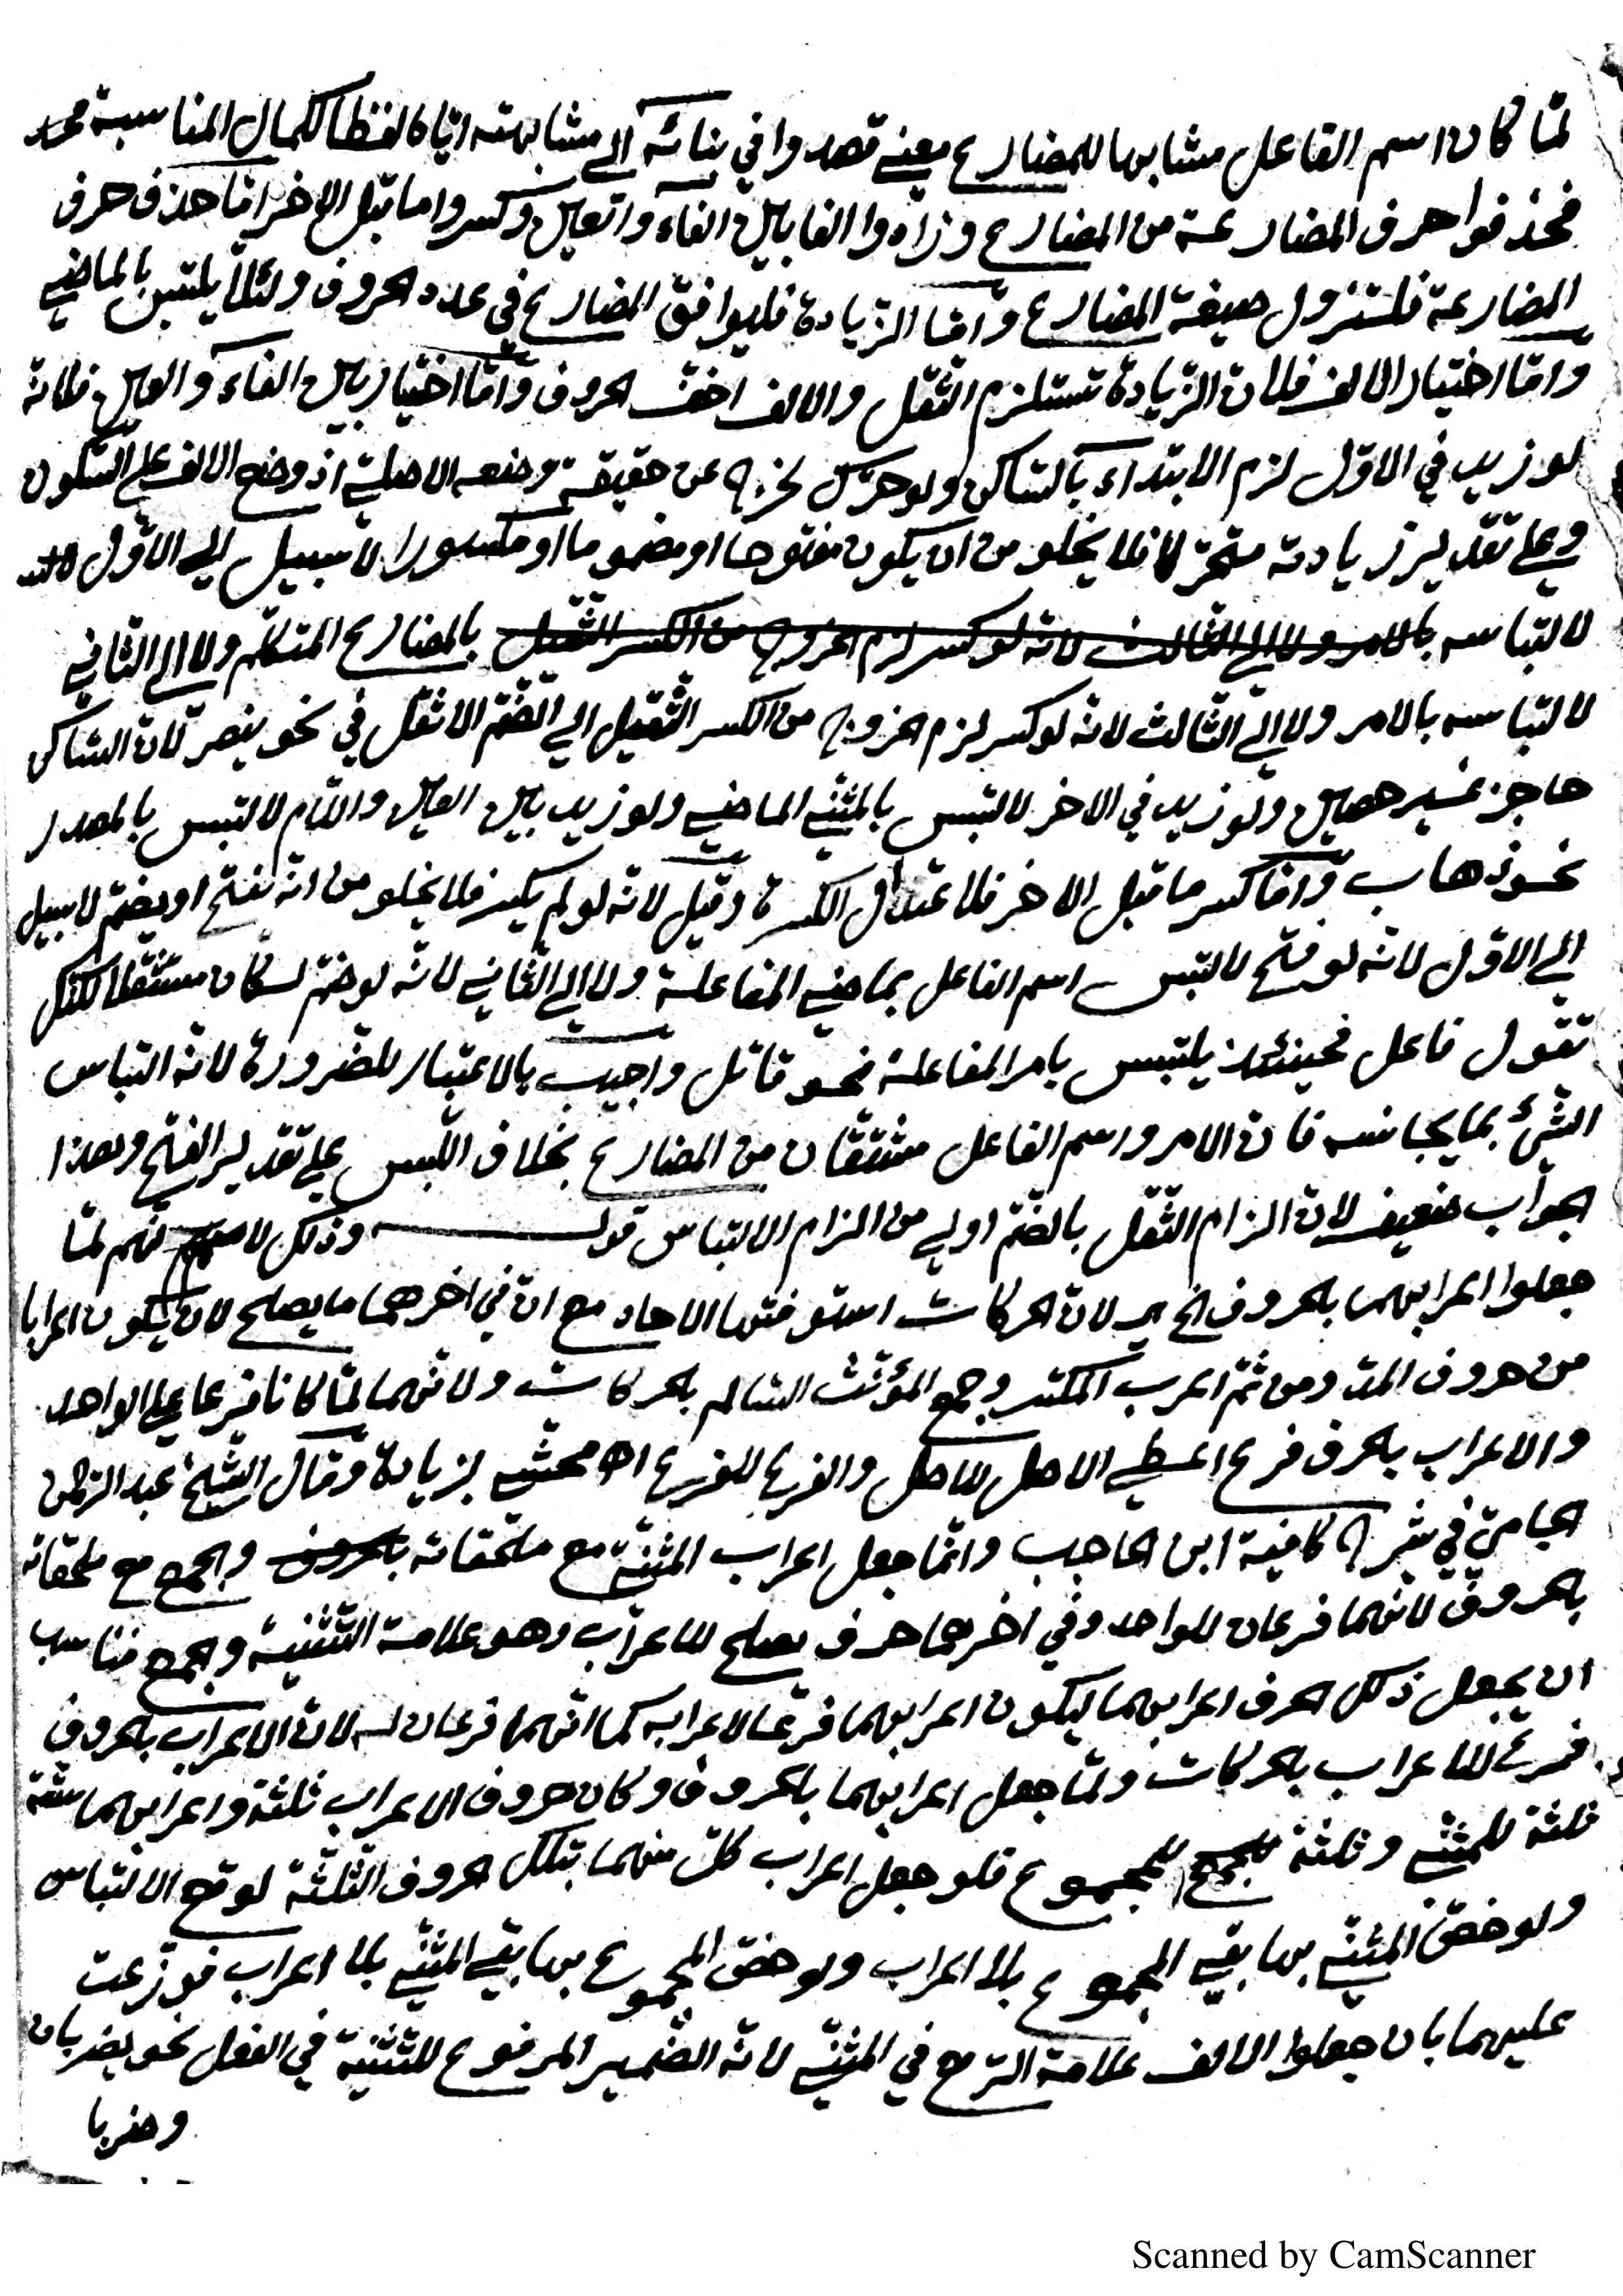 لمّا كان اسم الفاعل مشابها للمضارع معنى قصدوا في بنائه الى مشابهته ايّاه لفظا لكمال المناسبة
فحذفوا حرف المضارعة من المضارع وزادوا الفا بين الفاء والعين وكسروا ما قبل الاخر امّا حذف حرف
المضارعة فلتزول صيغة المضارع وامّا الزّيادة فليوافق المضارع في عدد الحروف ولئلّا يلتبس بالماضي
وامّا اختيار الالف فلان الزّيادة تستلزم الثّقل والالف اخفّ الحروف وامّا اختيار بين الفاء والعين فلانّه
لو زيد في الاوّل لزم الابتداء بالسّاكن ولو حرّك لخرج عن حقيقة وضعه الاصلية اذ وضع الالف على السّكون
وعلى تقدير زيادته متحرّكا فلا يخلو من ان يكون مفتوحا او مضموما او مكسورا لا سبيل الى الاوّل
لالتباسه بالامر ولا الى الثالث لانّه لو كسر لزم الخروج من الكسر الثّقيل بالمضارع المتكلّم ولا الى الثاني
لالتباسه بالامر ولا الى الثّالث لانّه لو كسر لزم الخروج من الكسر الثّقيل الى الضّمّ الاثقل في نحو ينصر لانّ السّاكن
حاجز غير حصين ولو زيد في الاخر لالتبس بالمثنّى الماضي ولو زيد بين العين واللّام لالتبس بالمصدر
نحو ذهاب وامّا كسر ما قبل الاخر فلاعتدال الكسرة وقيل لانّه لو لم يكسر فلا يخلو من انّه يفتح او يضمّ لا سبيل
الى الاوّل لانّه لو فتح لالتبس اسم الفاعل بماضي المفاعلة ولا الى الثّاني لانّه لو ضمّ لكان مستثقلا
تقول فاعل فحينئذ يلتبس بامر المفاعلة نحو قاتل واجيب بالاعتبار للضّرورة لانّه التباس
الشّيء بما يجانسه فانّ الامر واسم الفاعل مشتقّان من المضارع بخلاف اللّبس على تقدير الفتح وهذا
الجواب ضعيف لانّ الزام الثّقل بالضّمّ اولى من الزام الالتباس قوله وذلك فهم لمّا
جعلوا اعرابهما بالحروف لانّ الحركات استوفتها الاحاد مع انّ في اخرهما ما يصلح لان يكون اعرابا
من حروف المدّ ومن ثمّ اعرب المكسّر وجمع المؤنّث السّالم بالحركات ولانّهما لمّا كانا فرعا على الواحد
والاعراب بالحرف فرع اعطي الاصل للاصل والفرع للفرع اه محشّي بزيادة وقال الشّيخ عبد الرّحمن
الجاميّ في شرح كافية ابن الحاجب وانّما جعل اعراب المثنّى مع ملحقاته بالحروف والجمع مع ملحقاته
بالحروف لانّهما فرعان للواحد وفي اخرهما حرف يصلح للاعراب وهو علامة التّثنية والجمع فناسب
ان يجعل ذلك الحرف اعرابهما ليكون اعرابهما فرعا لاعرابه كما انّهما فرعان له لانّ الاعراب بالحروف
فرع للاعراب بالحركات ولمّا جعل اعرابهما بالحروف وكان حروف الاعراب ثلثة واعرابهما ستّة
ثلثة للمثنّى وثلثة للجمع للمجموع فلو جعل اعراب كلّ منهما بتلك الحروف الثّلثة لوقع الالتباس
ولو خصّ المثنّى بها بقي المجموع بلا اعراب ولو خصّ المجموع بها بقي المثنّى بلا اعراب فوزّعت
عليهما بان جعلوا الالف علامة الرّفع في المثنّى لانّه الضّمير المرفوع للتّثنية في الفعل نحو يضربان
وضربا
Scanned by CamScanner